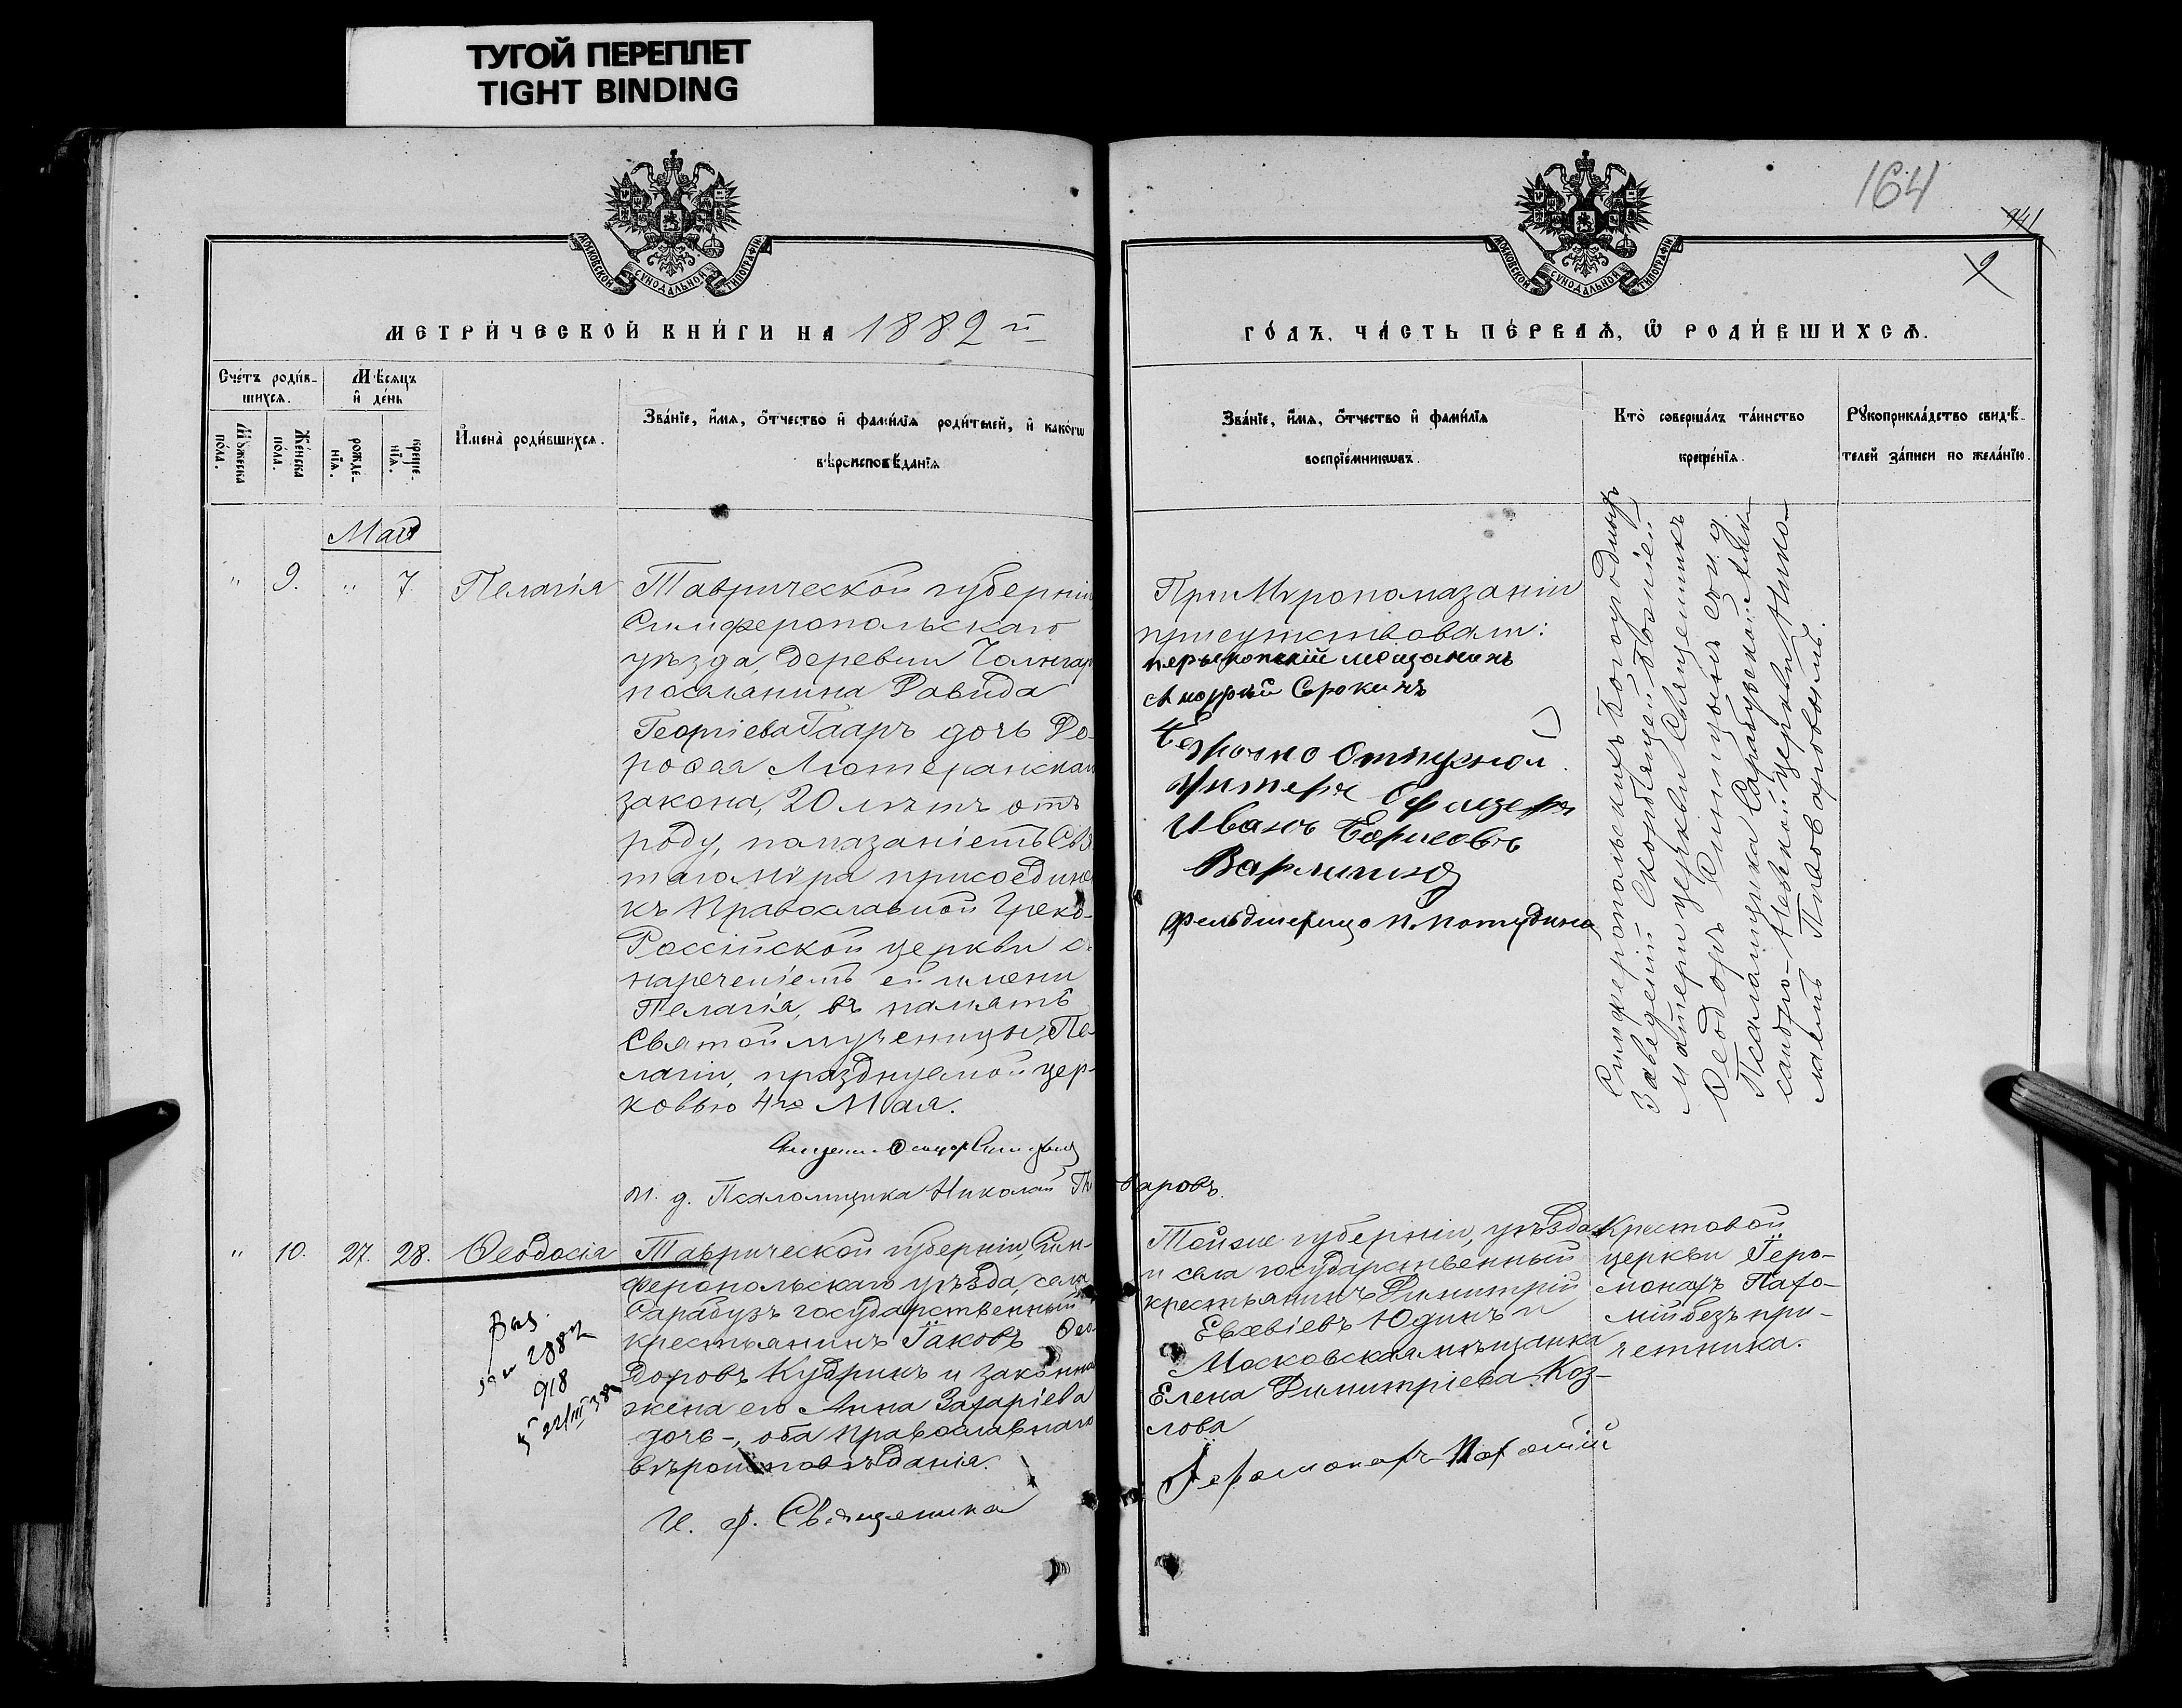 ТУГОЙ ПЕРЕПЛЕТ
TIGHT BINDING
МОСКОВСКОЙ СѴНОДАЛЬНОЙ ТИПОГРАФІИ
МЕТРИЧЕСКОЙ КНИГИ НА 1882 й
Счетъ родив-
шихся.
Мужеска
пола.
Женска
пола.
Мѣсяцъ
и день
рожде-
нія.
креще-
нія.
Имена родившихся.
Званіе, имя, отчество и фамилія родителей, и какого
вѣроисповѣданія
Май
" 9. " 7. Пелагія
Таврической губерніи
Симферопольскаго
уѣзда, деревни
поселянина Давида
Георгіева Гааръ дочь До-
рофея Лютеранскаго
закона, 20 лѣтъ отъ
роду, помазаніемъ Свя
таго Мѵра присоединена
къ Православной Греко-
Россійской церкви съ
нареченіемъ ей имени
Пелагія, въ память
Святой мученицы Пе-
лагіи, празднуемой цер-
ковью 4го Мая.
И. д. Псаломщика Николай
" 10. 27. 28. Ѳеодосія
Таврической губерніи, Сим-
феропольскаго уѣзда, села
Сарабузъ государственный
крестьянинъ Іаковъ Ѳео-
доровъ Кудринъ и законная
жена его Анна Захаріева
дочь -, оба Православнаго
вѣроисповѣданія.
И. д. Священника
Выд.
1882
918
164
ГОДЪ, ЧАСТЬ ПЕРВАЯ, Ѡ РОДИВШИХСЯ.
МОСКОВСКОЙ СѴНОДАЛЬНОЙ ТИПОГРАФІИ
Званіе, имя, отчество и фамилія
воспріемниковъ.
Кто совершалъ таинство
крещенія.
Рукоприкладство свидѣ-
телей записи по желанію.
При Мѵропомазаніи
присутствовали:
перекопскій мещанинъ
Андрей Сорокинъ
Безрочно Отпускной
Унтеръ Офицеръ
Иванъ Борисовъ
фельдшерица П. Потудина
Симферопольскихъ Богоугодныхъ
Заведеній Скорбящей Божіей
Матери церкви Священникъ
Ѳеодоръ Синицынъ съ и. д
Псаломщика Сарабузской Алек-
сандро-Невской церкви Нико-
лаемъ
варовъ.
Той же губерніи, уѣзда
и села государственный
крестьянинъ Димитрій
Евѳвіевъ Юдинъ и
Московская мѣщанка
Елена Димитріева Коз-
лова
Іеромонахъ Пахомій
Крестовой
церкви Іеро-
монахъ Пахо-
мій безъ при-
четника.